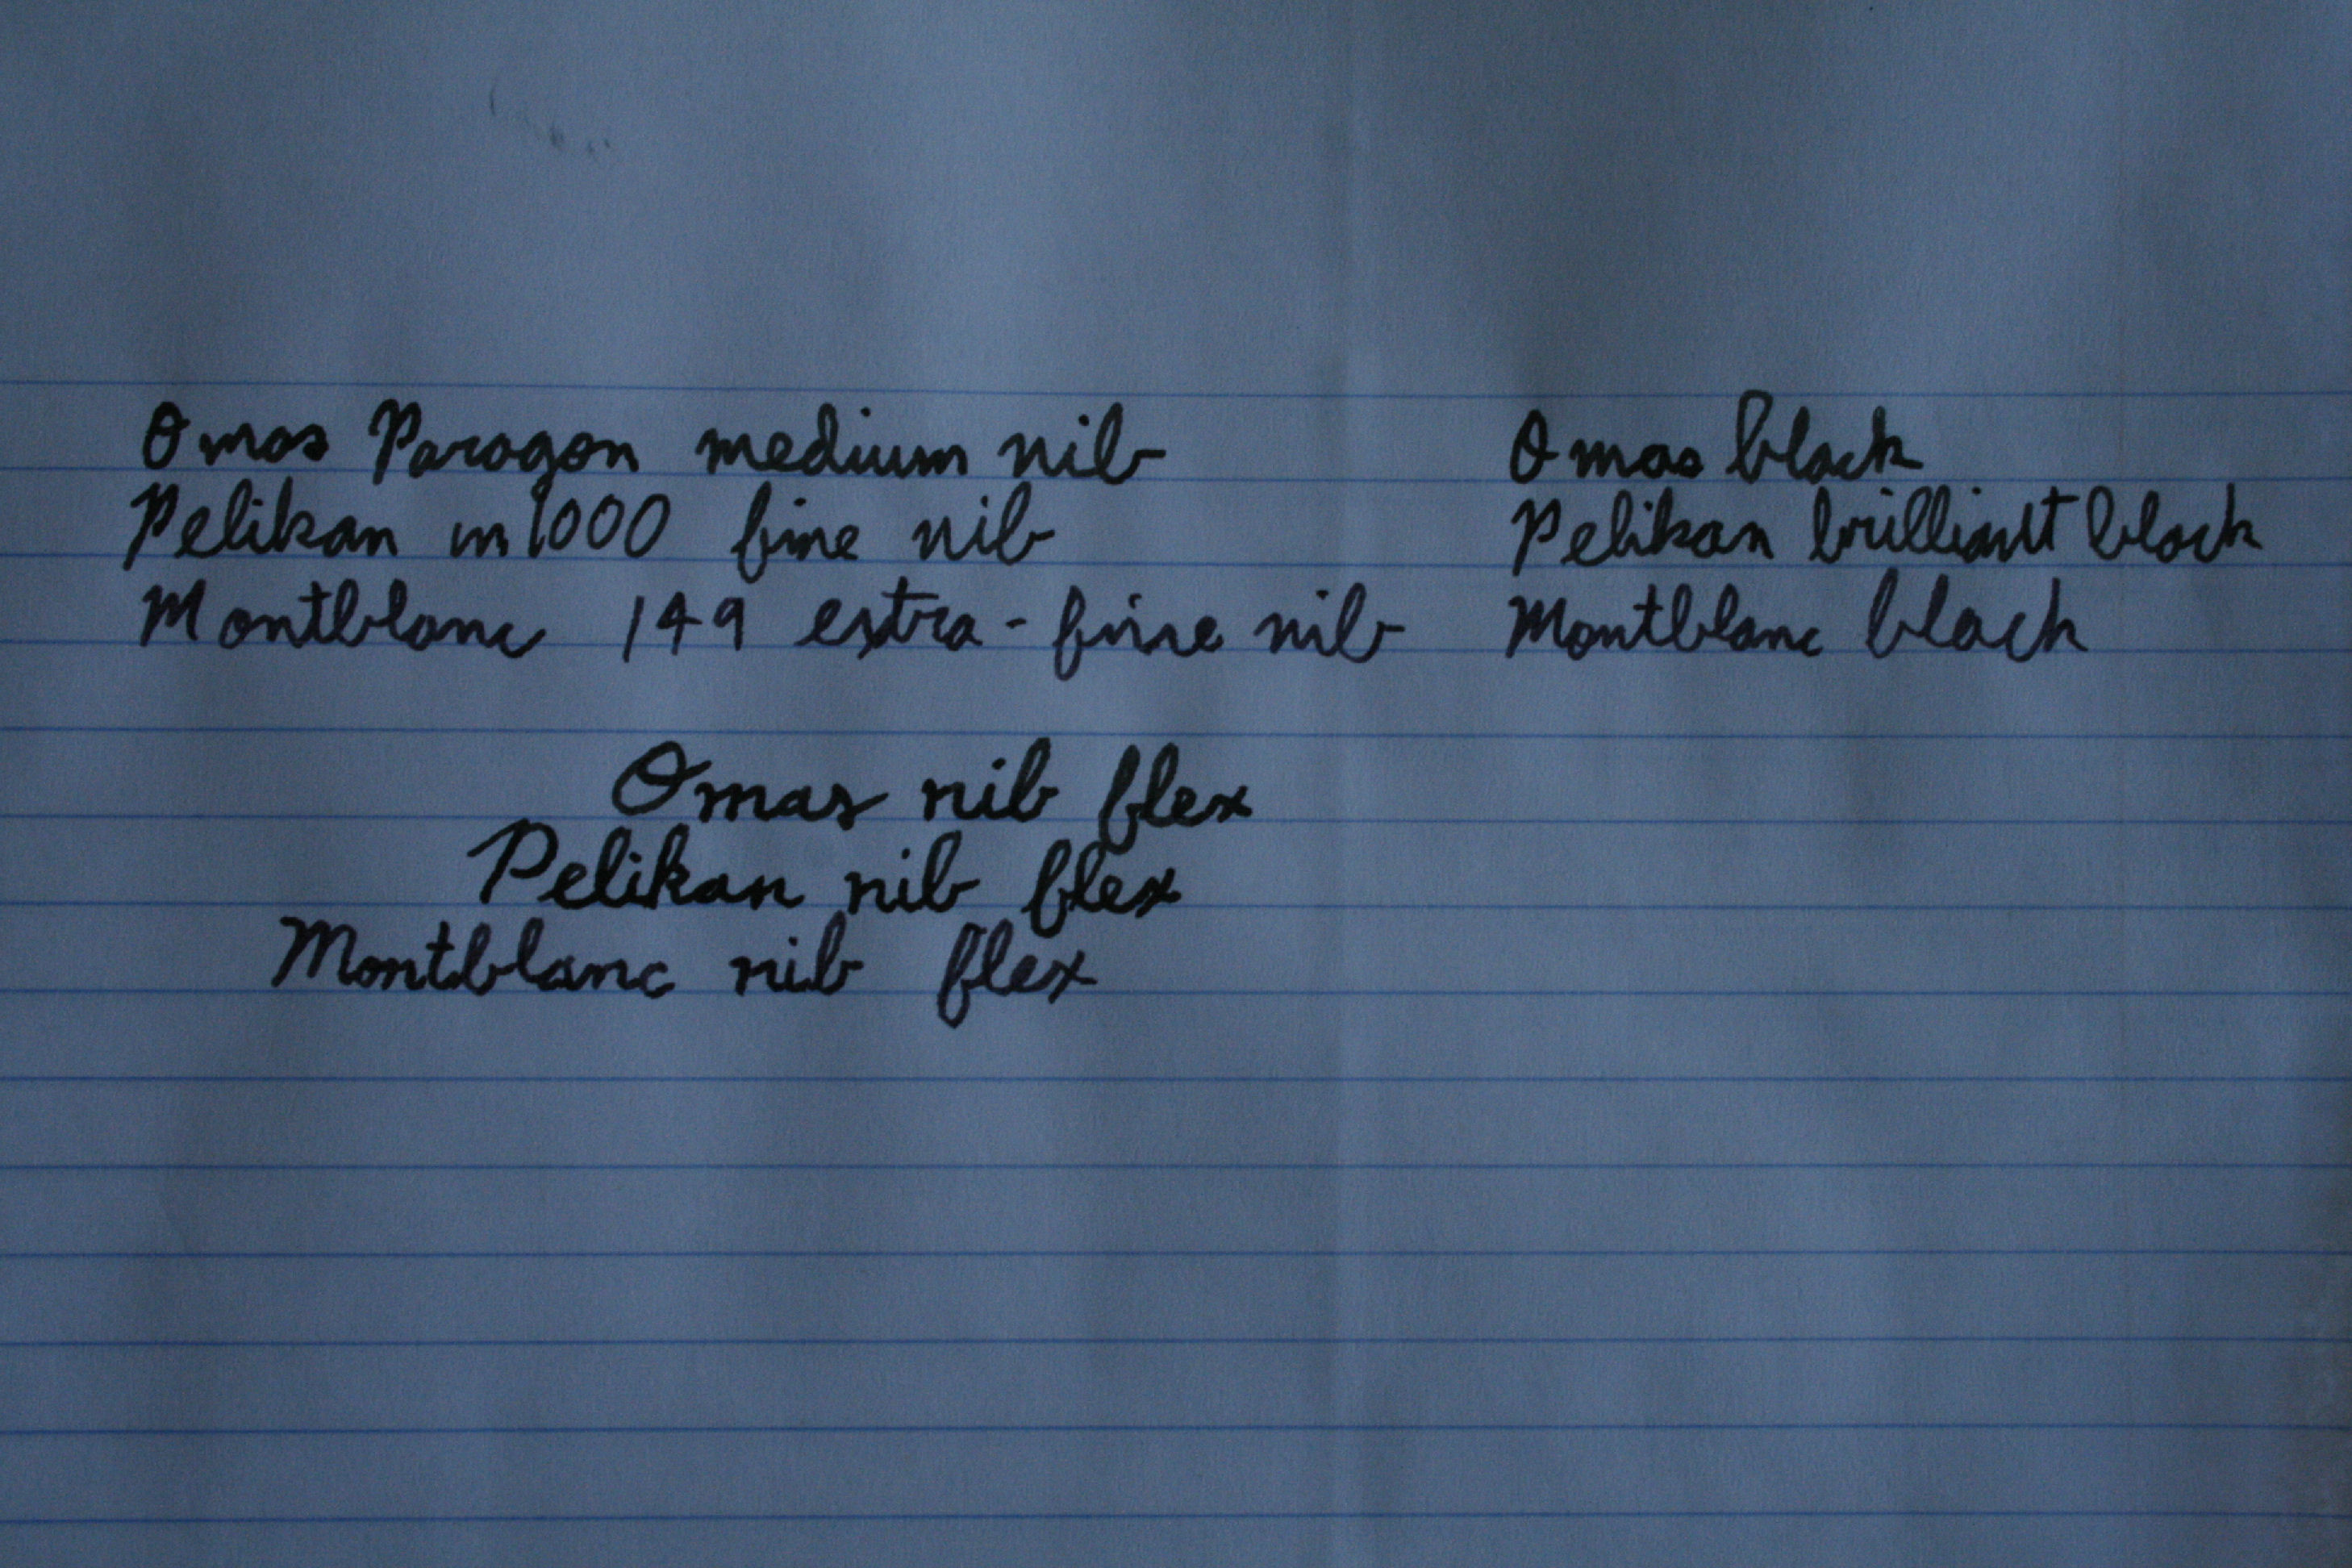 Omas Paragon medium nib Omas black
Pelikan m1000 fine nib Pelikan brilliant black
Montblanc 149 extra-fine nib Montblanc black
Omas nib flex
Pelikan nib flex
Montblanc nib flex